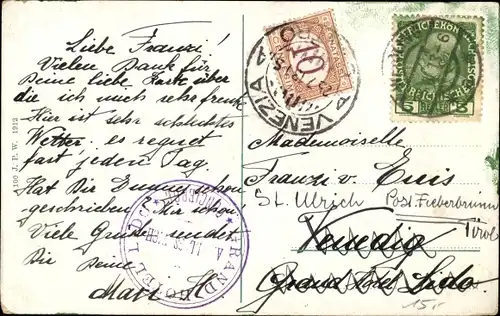 Liebe Franzi!
Vielen Dank für
Deine liebe Karte über
die ich mich sehr freute
Hier ist sehr schlechtes
Wetter. es regnet
fast jeden Tag
Hat Dir schon
geschrieben? Mir schon!
Viele Grüße sendet
Dir Deine
4100 J. P. W. 1912
VENEZIA
10
5 5
GRAND HOTEL LIDO
Mademoiselle
Franzi v.
St. Ulrich Post Fieberbrunn
Tirol
Venedig
Grand Hotel Lido
15,-